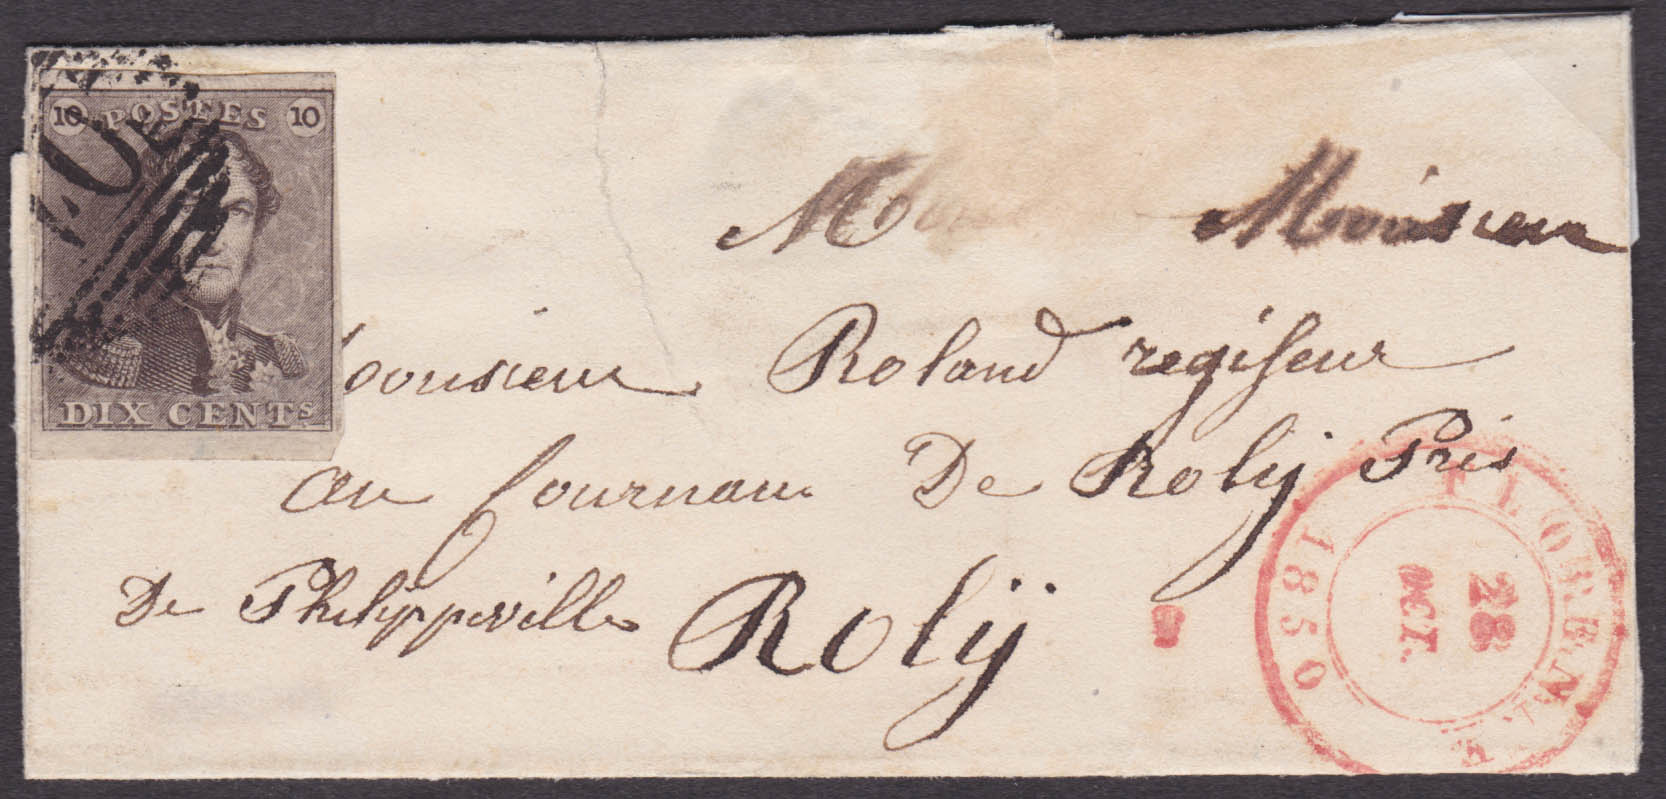 10 POSTES 10
DIX CENTS
Monsieur
Monsieur Roland regiseur
au fournau De Rolÿ Près
De Philippeville Rolÿ
FLORENN
28
OCT.
1850